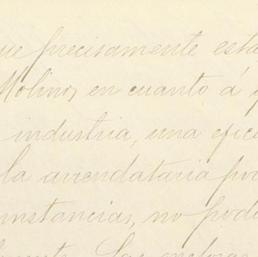 que precisamente esta
Molino, en cuanto á
industria, una efica
la arrendataria pod
cunstancias, no podi
Las